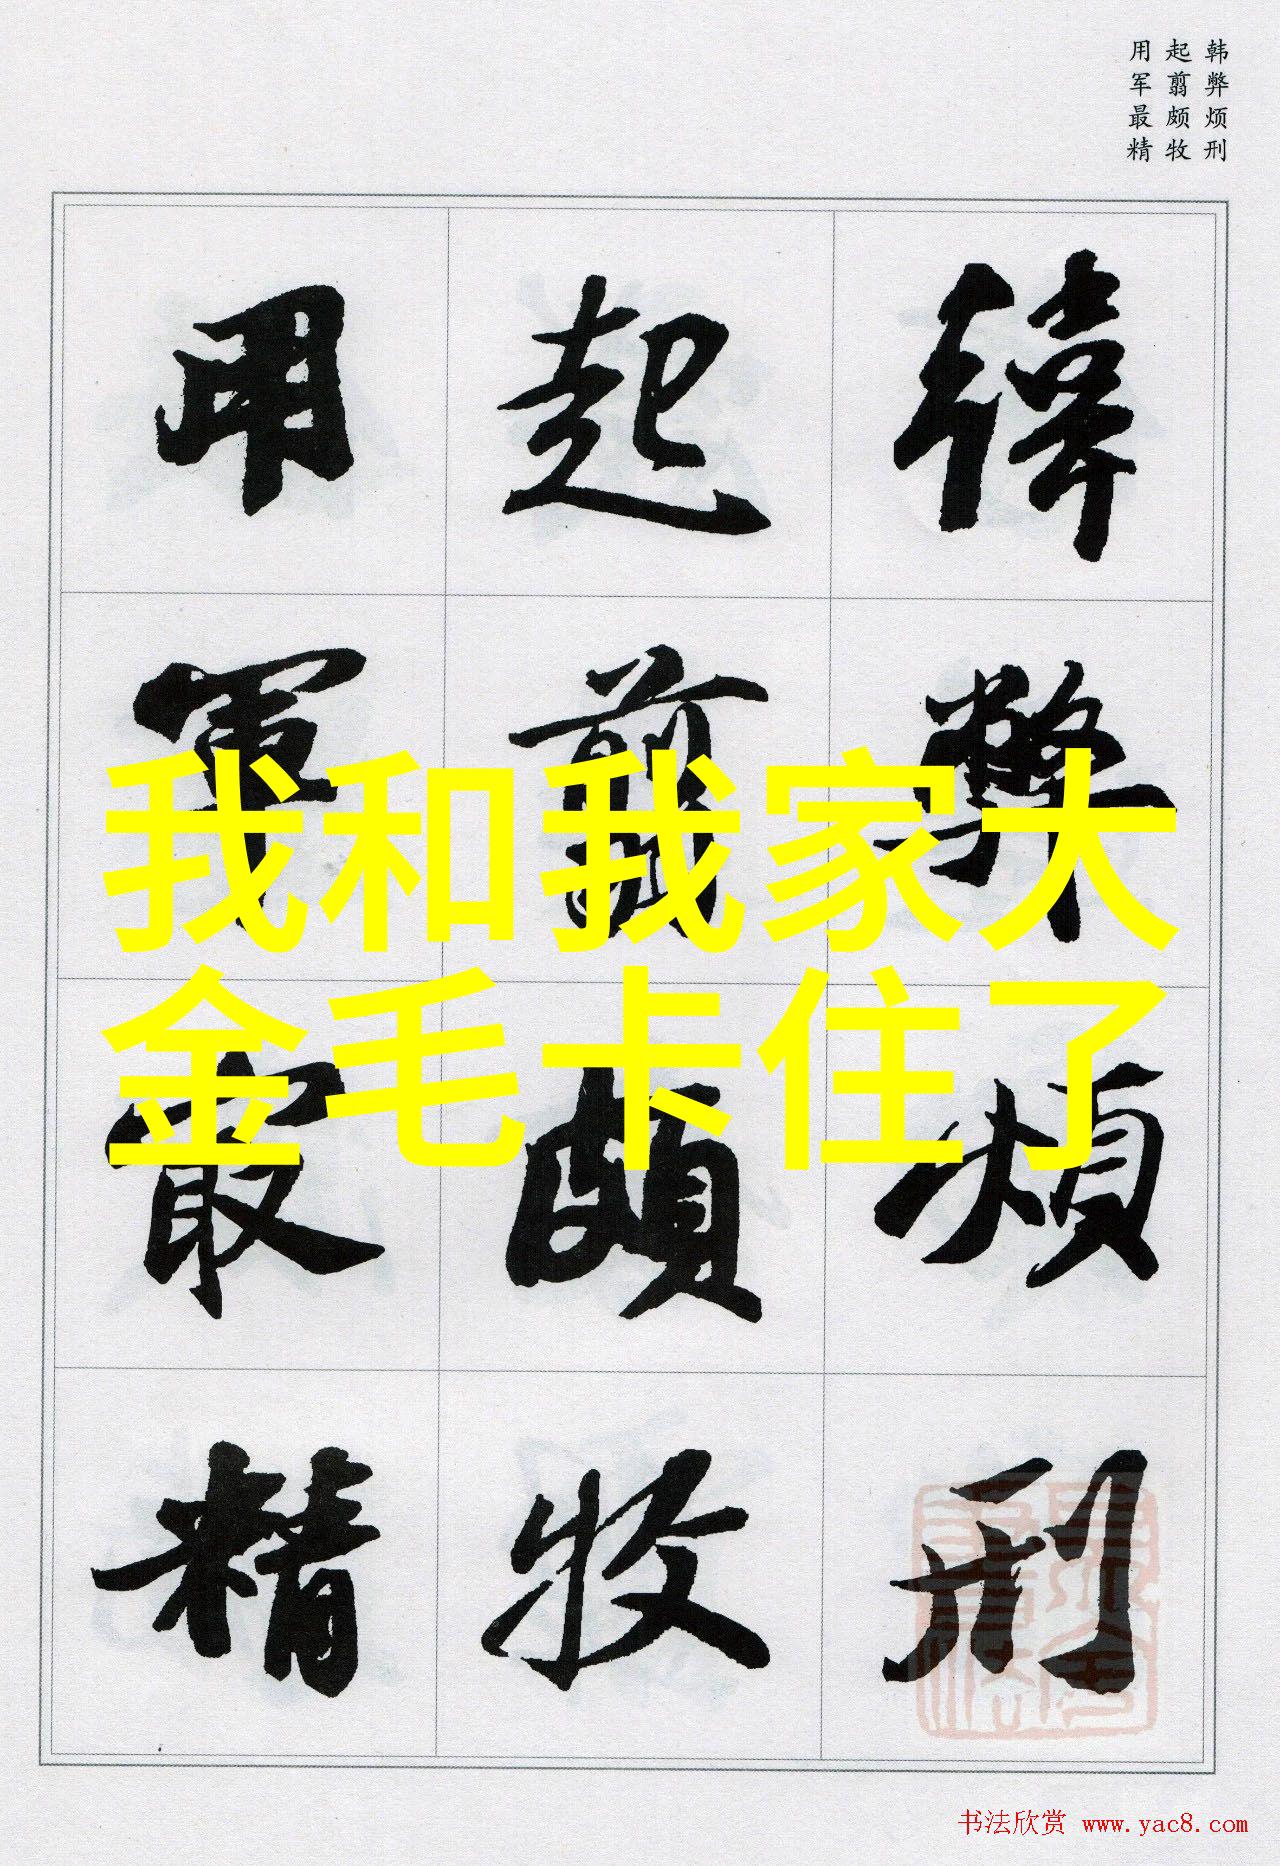 韩弊烦刑
起翦颇牧
用军最精
韓弊煩刑
起翦頗牧
用軍最精
我和我家大
金毛卡住了
书法欣赏 www.yac8.com